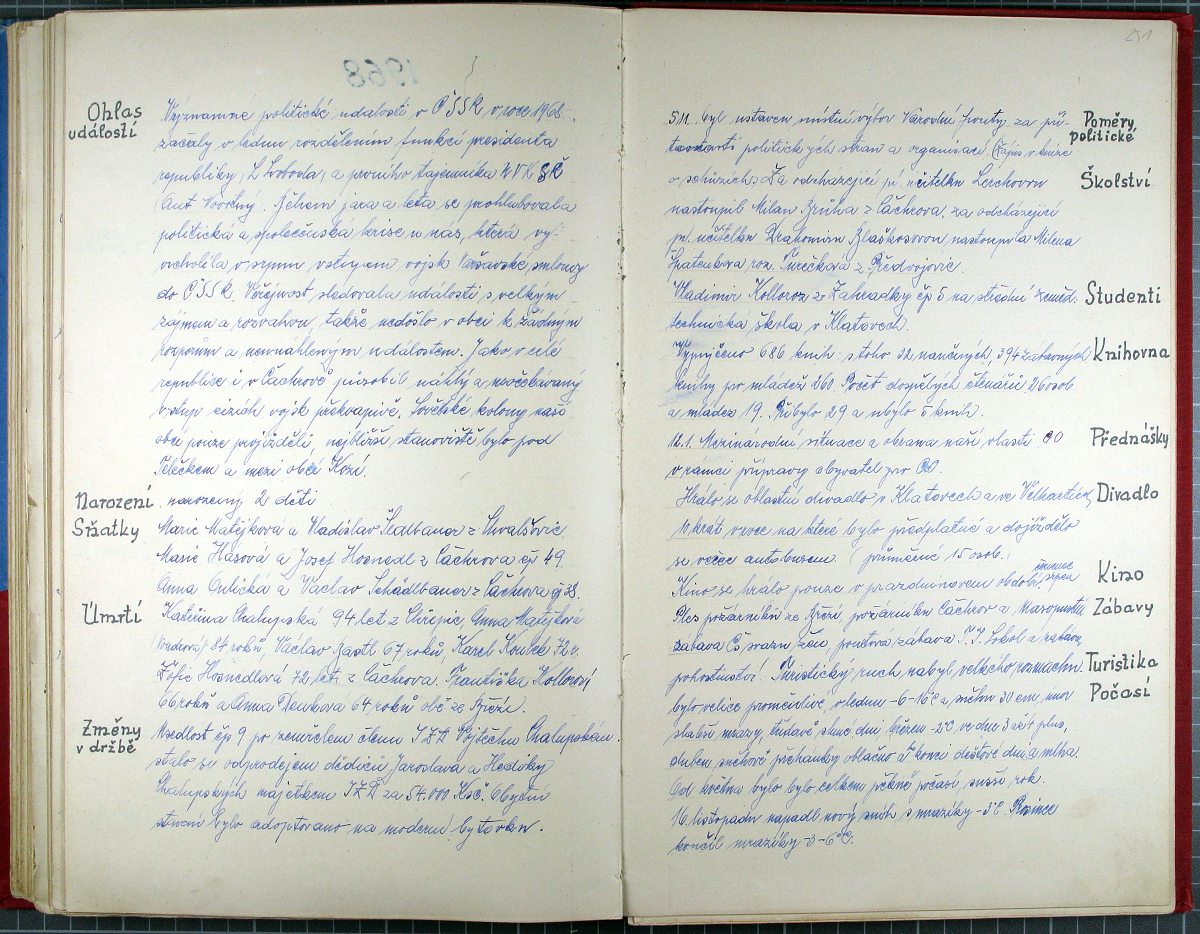 1968
Ohlas
událostí
Významné politické události v ČSSR v roce 1968.
začaly v lednu rozdělením funkcí presidenta
republiky, L Svoboda, a prvního tajemníka ÚVKSČ
Ant Novotny. Během jara a leta se prohlubovala
politická a společenská krise u nás, která vy-
vrcholila v srpnu vstupem vojsk Varšavské smlouvy
do ČSSR. Veřejnost sledovala události s velkým
zájmem a rozvahou takže nedošlo v obci k žádným
rozporům a neunáhleným událostem. Jako v celé
republice i v Čachrově působil náhlý a neočekávaný
vstup cizích vojsk překvapivě. Sovětské kolony naší
obcí pouze projížděli, nejbližší stanoviště bylo pod
a mezi obcí Kozí.
Narození narozeny 2 děti
Sňatky Marie Matějková a Vladislav z
Marie Hasová a Josef Hosnedl z Čachrova čp 49.
Anna a Václav Schädlbauer z Čachrova čp 28.
Úmrtí Kateřina Chalupská 94 let z Chřepic, Anna Matějková
84 roků, Václav Rástl 67 roků, Karel 72 r.
Žofie Hosnedlová 72 let z Čachrova. Františka
66 roků a Anna Denkova 64 roků obě ze Březí.
Změny
v držbě
Usedlost čp 9 po zemřelém členu JZD Vojtěchu Chalupském.
stalo se odprodejem dědiců Jaroslava a Hedviky
Chalupských majetkem JZD za 54.000 Kčs. Obytné
stavení bylo adoptovano na moderní bytovku.
251
5.11. byl ustaven místní výbor Národní fronty za při-
politických stran a organisací. (Zápis v knize
Poměry
politické
o schůzích.) Za odcházející pí učitelku Lerchovou
Školství
nastoupil Milan Brůha z Čachrova, za odcházející
pí. učitelku Drahomiru Blaškosovou nastoupila Milena
Špatenkova roz. Turečkova z Předvojovic.
Vladimir Kolloroz z Zahradky čp 5 na střední zeměd.
Studenti
technická škola v Klatovech.
Vypujčeno 686 knih z toho 32 naučných, 394 zábavných
Knihovna
knihy pro mládež 260. Počet dospělých čtenářů 26 osob
a mládež 19. Přibylo 29 a ubylo 5 knih.
12.1. Mezinárodní situace a obrana naší vlasti CO
Přednášky
v rámci přípravy obyvatel pro CO.
Hrálo se oblastní divadlo v Klatovech a ve Velharticích,
Divadlo
10 krát v roce na které bylo předplatné a dojíždělo
se vešce autobusem (průměrně 15 osob.)
Kino se hrálo pouze v prazdninovem období, červenec srpen
Kino
Ples požárníků ze Březí, požárníku Čachrov a Masopustní
Zábavy
zabava Čs svazu žen, pouťova zábava T.J. Sokol a zabava
pohostinství. Turistický ruch nabyl velkého rozmachu
Turistika
bylo velice proměnlivé, v lednu -6 -16°C a sněhu 30 cm, únor
Počasí
slabší mrazy, slunc dní. březen -2°C ve dne 3 až 4 plus,
duben sněhové přeháňky oblačno a koncí deštové dni a mlha.
Od května bylo bylo celkem pěkné počasí, sušší rok.
16. listopadu napadl nový sníh s mrazíky -3°C. Prosinec
končil mrazíky -3 -6°C.